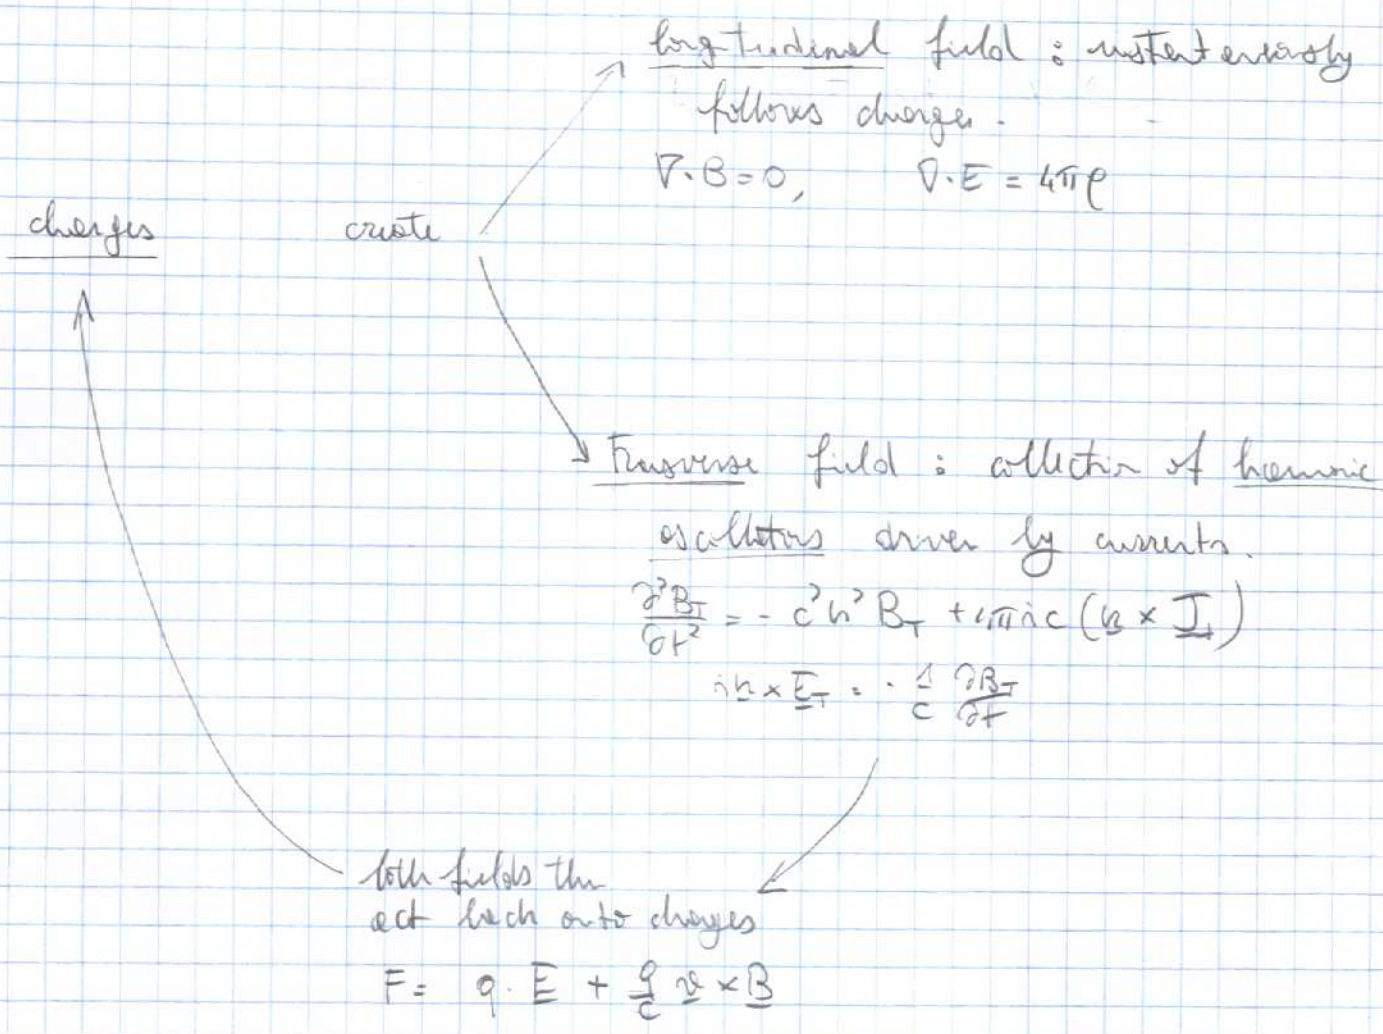 longitudinal field : instantaneously
follows charges.
∇·B=0, ∇·E = 4πρ
charges create
Transverse field : collection of harmonic
oscillators driven by currents.
∂²B_T/∂t² = - c²k² B_T + 4πic (k × J_T)
ik × E_T = - 1/c ∂B_T/∂t
both fields then
act back onto charges
F = q·E + q/c v × B